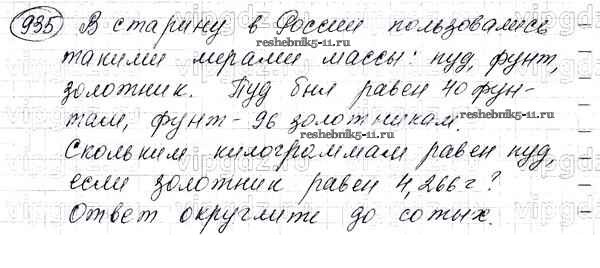 935 В старину в России пользовались
такими мерами массы: пуд, фунт,
золотник. Пуд был равен 40 фун-
там, фунт - 96 золотникам.
Скольким килограммам равен пуд,
если золотник равен 4,266 г?
Ответ округлите до сотых.
reshebnik5-11.ru
reshebnik5-11.ru